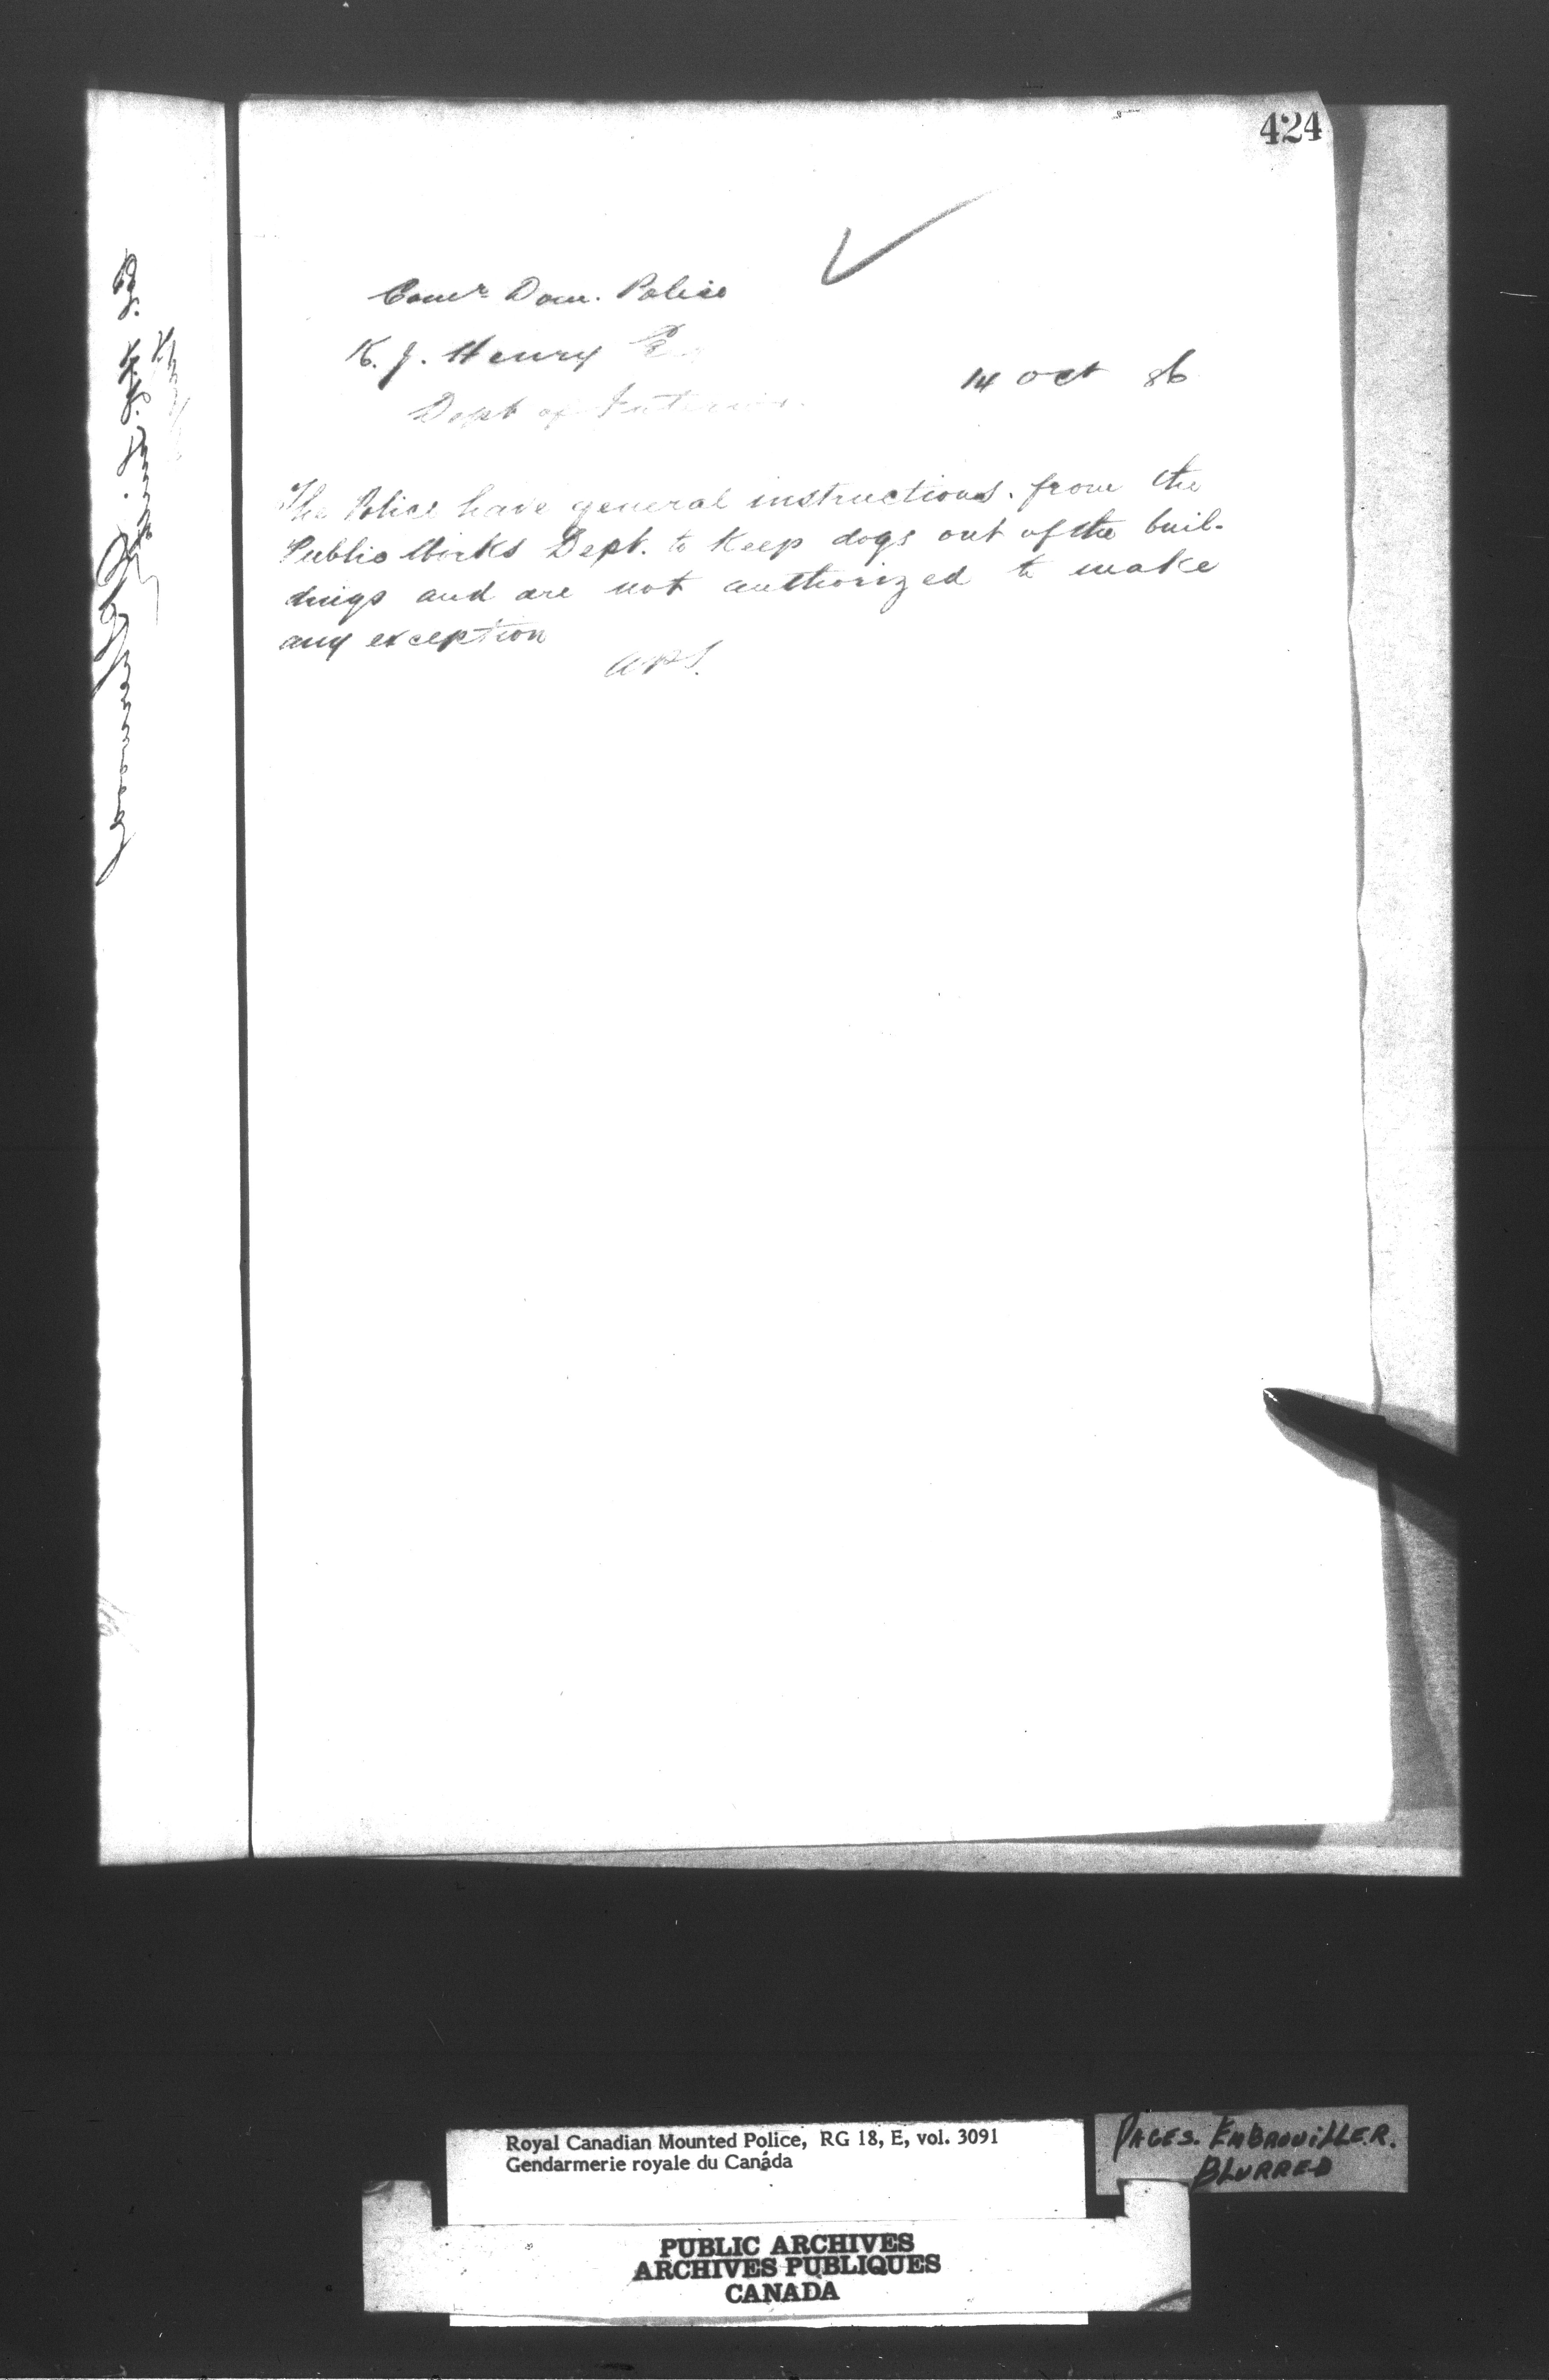 424
Comr Dom. Police
K. J. Henry
14 Oct 86
Dept of Interior.
The Police have general instructions. from the
Public Works Dept. to keep dogs out of the buil-
dings and are not authorized to make
any exception
APS.
Royal Canadian Mounted Police, RG 18, E, vol. 3091
Gendarmerie royale du Canada
PAGES. EMBROUILLER.
BLURRED
PUBLIC ARCHIVES
ARCHIVES PUBLIQUES
CANADA